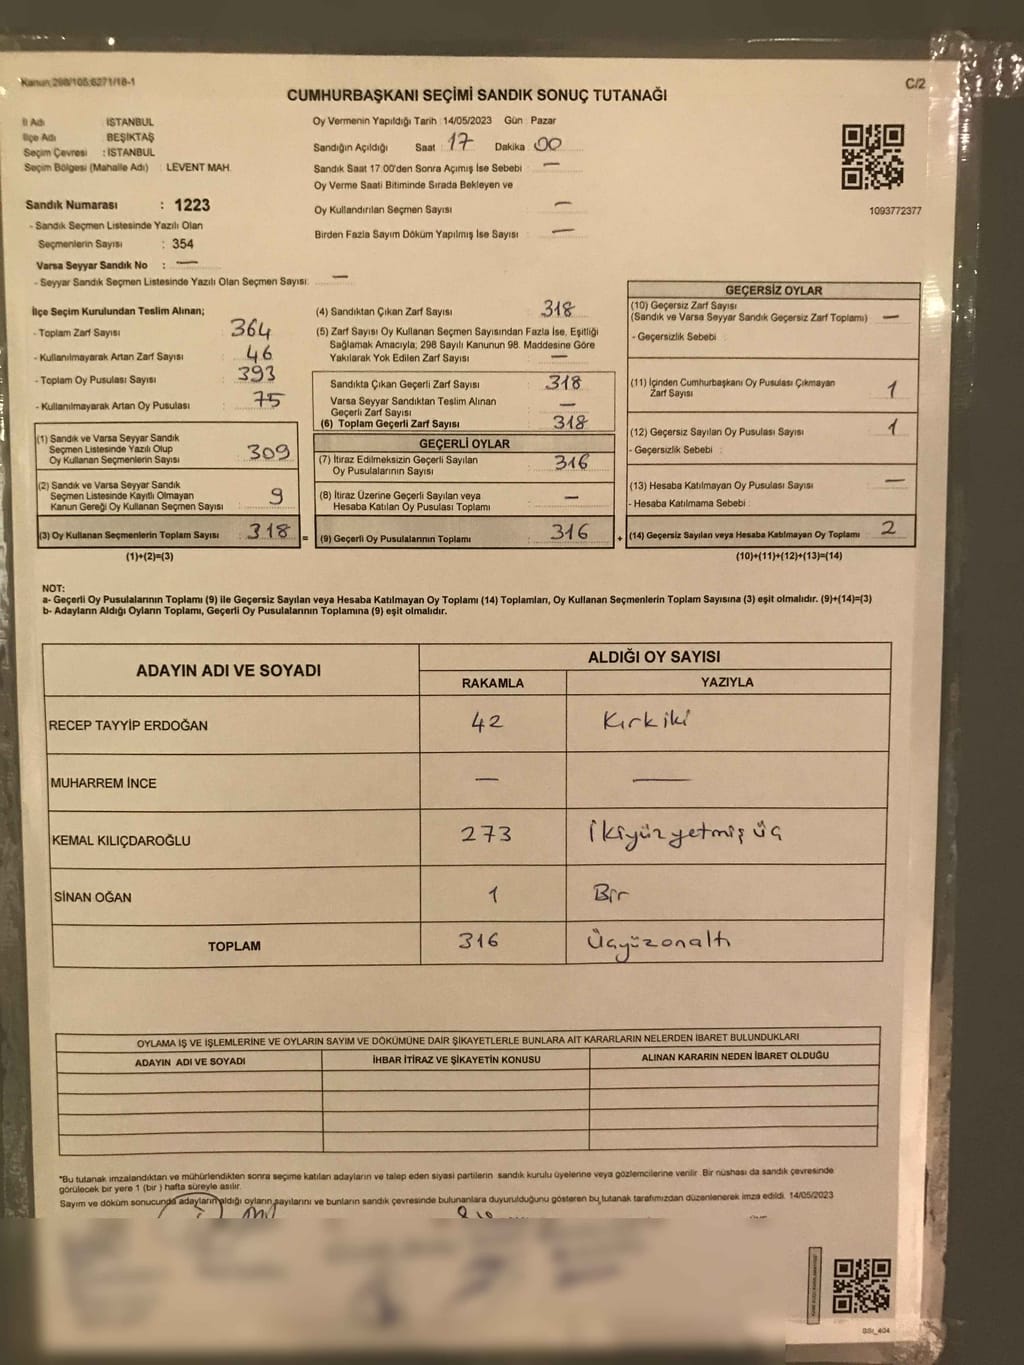 Kanun:298/105;6271/18-1
C/2
CUMHURBAŞKANI SEÇİMİ SANDIK SONUÇ TUTANAĞI
İl Adı : İSTANBUL
İlçe Adı : BEŞİKTAŞ
Seçim Çevresi : İSTANBUL
Seçim Bölgesi (Mahalle Adı) : LEVENT MAH.
Oy Vermenin Yapıldığı Tarih : 14/05/2023 Gün : Pazar
Sandığın Açıldığı Saat : 17 Dakika : 00
Sandık Saat 17:00'den Sonra Açımış İse Sebebi : —
Oy Verme Saati Bitiminde Sırada Bekleyen ve
Oy Kullandırılan Seçmen Sayısı : —
Birden Fazla Sayım Döküm Yapılmış İse Sayısı : —
1093772377
Sandık Numarası : 1223
- Sandık Seçmen Listesinde Yazılı Olan
Seçmenlerin Sayısı : 354
Varsa Seyyar Sandık No : —
- Seyyar Sandık Seçmen Listesinde Yazılı Olan Seçmen Sayısı: —
İlçe Seçim Kurulundan Teslim Alınan;
- Toplam Zarf Sayısı : 364
- Kullanılmayarak Artan Zarf Sayısı : 46
- Toplam Oy Pusulası Sayısı : 393
- Kullanılmayarak Artan Oy Pusulası : 75
(1) Sandık ve Varsa Seyyar Sandık
Seçmen Listesinde Yazılı Olup
Oy Kullanan Seçmenlerin Sayısı : 309
(2) Sandık ve Varsa Seyyar Sandık
Seçmen Listesinde Kayıtlı Olmayan
Kanun Gereği Oy Kullanan Seçmen Sayısı : 9
(3) Oy Kullanan Seçmenlerin Toplam Sayısı : 318
(1)+(2)=(3)
(4) Sandıktan Çıkan Zarf Sayısı : 318
(5) Zarf Sayısı Oy Kullanan Seçmen Sayısından Fazla İse, Eşitliği
Sağlamak Amacıyla; 298 Sayılı Kanunun 98. Maddesine Göre
Yakılarak Yok Edilen Zarf Sayısı : —
Sandıkta Çıkan Geçerli Zarf Sayısı : 318
Varsa Seyyar Sandıktan Teslim Alınan
Geçerli Zarf Sayısı : —
(6) Toplam Geçerli Zarf Sayısı : 318
GEÇERLİ OYLAR
(7) İtiraz Edilmeksizin Geçerli Sayılan
Oy Pusulalarının Sayısı : 316
(8) İtiraz Üzerine Geçerli Sayılan veya
Hesaba Katılan Oy Pusulası Toplamı : —
= (9) Geçerli Oy Pusulalarının Toplamı : 316
GEÇERSİZ OYLAR
(10) Geçersiz Zarf Sayısı
(Sandık ve Varsa Seyyar Sandık Geçersiz Zarf Toplamı) : —
- Geçersizlik Sebebi :
(11) İçinden Cumhurbaşkanı Oy Pusulası Çıkmayan
Zarf Sayısı : 1
(12) Geçersiz Sayılan Oy Pusulası Sayısı : 1
- Geçersizlik Sebebi :
(13) Hesaba Katılmayan Oy Pusulası Sayısı : —
- Hesaba Katılmama Sebebi :
+ (14) Geçersiz Sayılan veya Hesaba Katılmayan Oy Toplamı : 2
(10)+(11)+(12)+(13)=(14)
NOT:
a- Geçerli Oy Pusulalarının Toplamı (9) ile Geçersiz Sayılan veya Hesaba Katılmayan Oy Toplamı (14) Toplamları, Oy Kullanan Seçmenlerin Toplam Sayısına (3) eşit olmalıdır. (9)+(14)=(3)
b- Adayların Aldığı Oyların Toplamı, Geçerli Oy Pusulalarının Toplamına (9) eşit olmalıdır.
ADAYIN ADI VE SOYADI ALDIĞI OY SAYISI
RAKAMLA YAZIYLA
RECEP TAYYİP ERDOĞAN 42 Kırkiki
MUHARREM İNCE — —
KEMAL KILIÇDAROĞLU 273 İkiyüzyetmiş üç
SİNAN OĞAN 1 Bir
TOPLAM 316 Üçyüzonaltı
OYLAMA İŞ VE İŞLEMLERİNE VE OYLARIN SAYIM VE DÖKÜMÜNE DAİR ŞİKAYETLERLE BUNLARA AİT KARARLARIN NELERDEN İBARET BULUNDUKLARI
ADAYIN ADI VE SOYADI İHBAR İTİRAZ VE ŞİKAYETİN KONUSU ALINAN KARARIN NEDEN İBARET OLDUĞU
*Bu tutanak imzalandıktan ve mühürlendikten sonra seçime katılan adayların ve talep eden siyasi partilerin sandık kurulu üyelerine veya gözlemcilerine verilir. Bir nüshası da sandık çevresinde
görülecek bir yere 1 (bir ) hafta süreyle asılır.
Sayım ve döküm sonucunda adayların aldığı oyların sayılarını ve bunların sandık çevresinde bulunanlara duyurulduğunu gösteren bu tutanak tarafımızdan düzenlenerek imza edildi. 14/05/2023